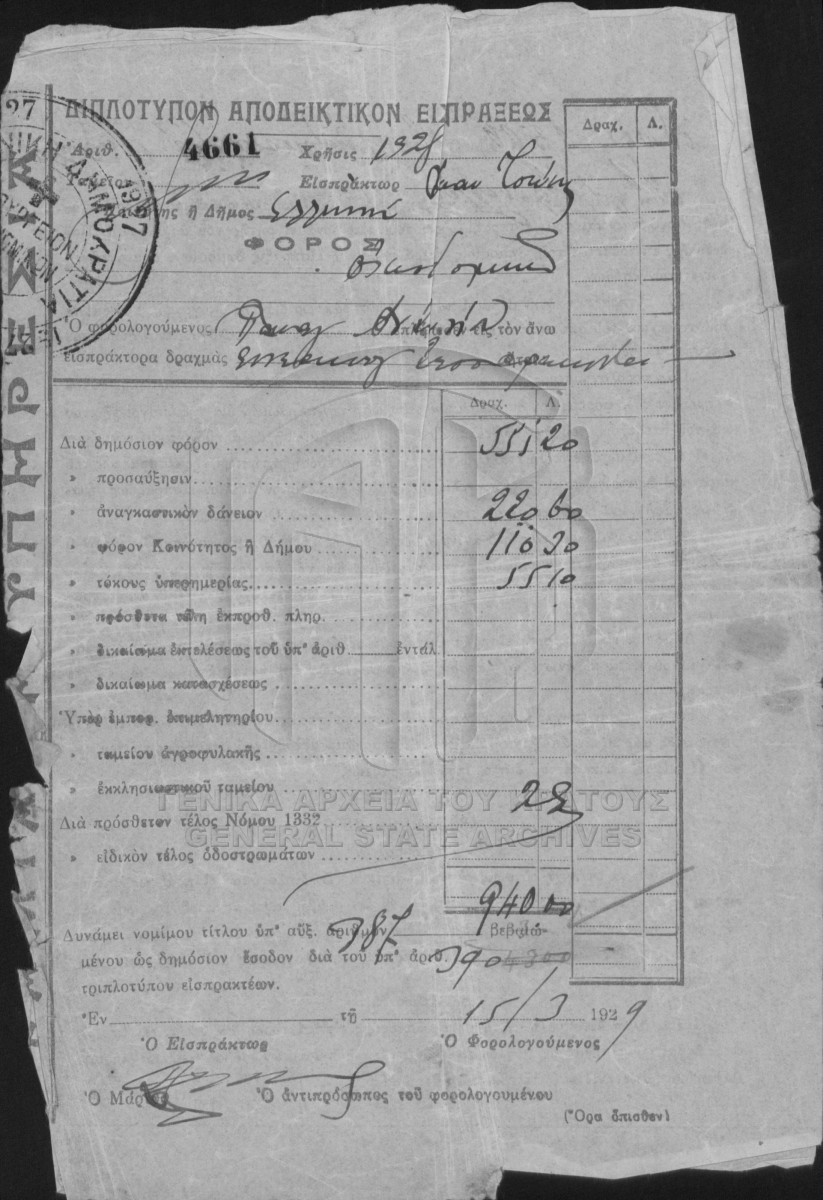 ΔΙΠΛΟΤΥΠΟΝ ΑΠΟΔΕΙΚΤΙΚΟΝ ΕΙΣΠΡΑΞΕΩΣ
Δραχ. Λ.
27
1927
ΔΗΜΟΚΡΑΤΙΑ
Ἀριθ. 4661 Χρῆσις 1928
Ταμεῖον Εἰσπράκτωρ
ἢ Δῆμος
ΦΟΡΟΣ
Ὁ φορολογούμενος εἰς τὸν ἄνω
εἰσπράκτορα δραχμὰς
Δραχ. Λ.
Διὰ δημόσιον φόρον 551 20
» προσαύξησιν
» ἀναγκαστικὸν δάνειον 220 60
» φόρον Κοινότητος ἢ Δήμου 110 30
» τόκους ὑπερημερίας 55 10
» πρόσθετα τέλη ἐκπροθ. πληρ.
» δικαίωμα ἐκτελέσεως τοῦ ὑπ' ἀριθ. ἐντάλ
» δικαίωμα κατασχέσεως
Ὑπὲρ ἐμπορ. ἐπιμελητηρίου
» ταμείου ἀγροφυλακῆς
» ἐκκλησιαστικοῦ ταμείου
ΓΕΝΙΚΑ ΑΡΧΕΙΑ ΤΟΥ ΚΡΑΤΟΥΣ
Διὰ πρόσθετον τέλος Νόμου 1332
GENERAL STATE ARCHIVES
» εἰδικὸν τέλος ὁδοστρωμάτων
940 00
Δυνάμει νομίμου τίτλου ὑπ' αὔξ. ἀριθμὸν 387 βεβαιω-
μένου ὡς δημόσιον ἔσοδον διὰ τοῦ ὑπ' ἀριθ.
τριπλοτύπου εἰσπρακτέων.
Ἐν τῇ 15/3 1929
Ὁ Εἰσπράκτωρ Ὁ Φορολογούμενος
Ὁ Μάρτυς Ὁ ἀντιπρόσωπος τοῦ φορολογουμένου
(Ὅρα ὄπισθεν)